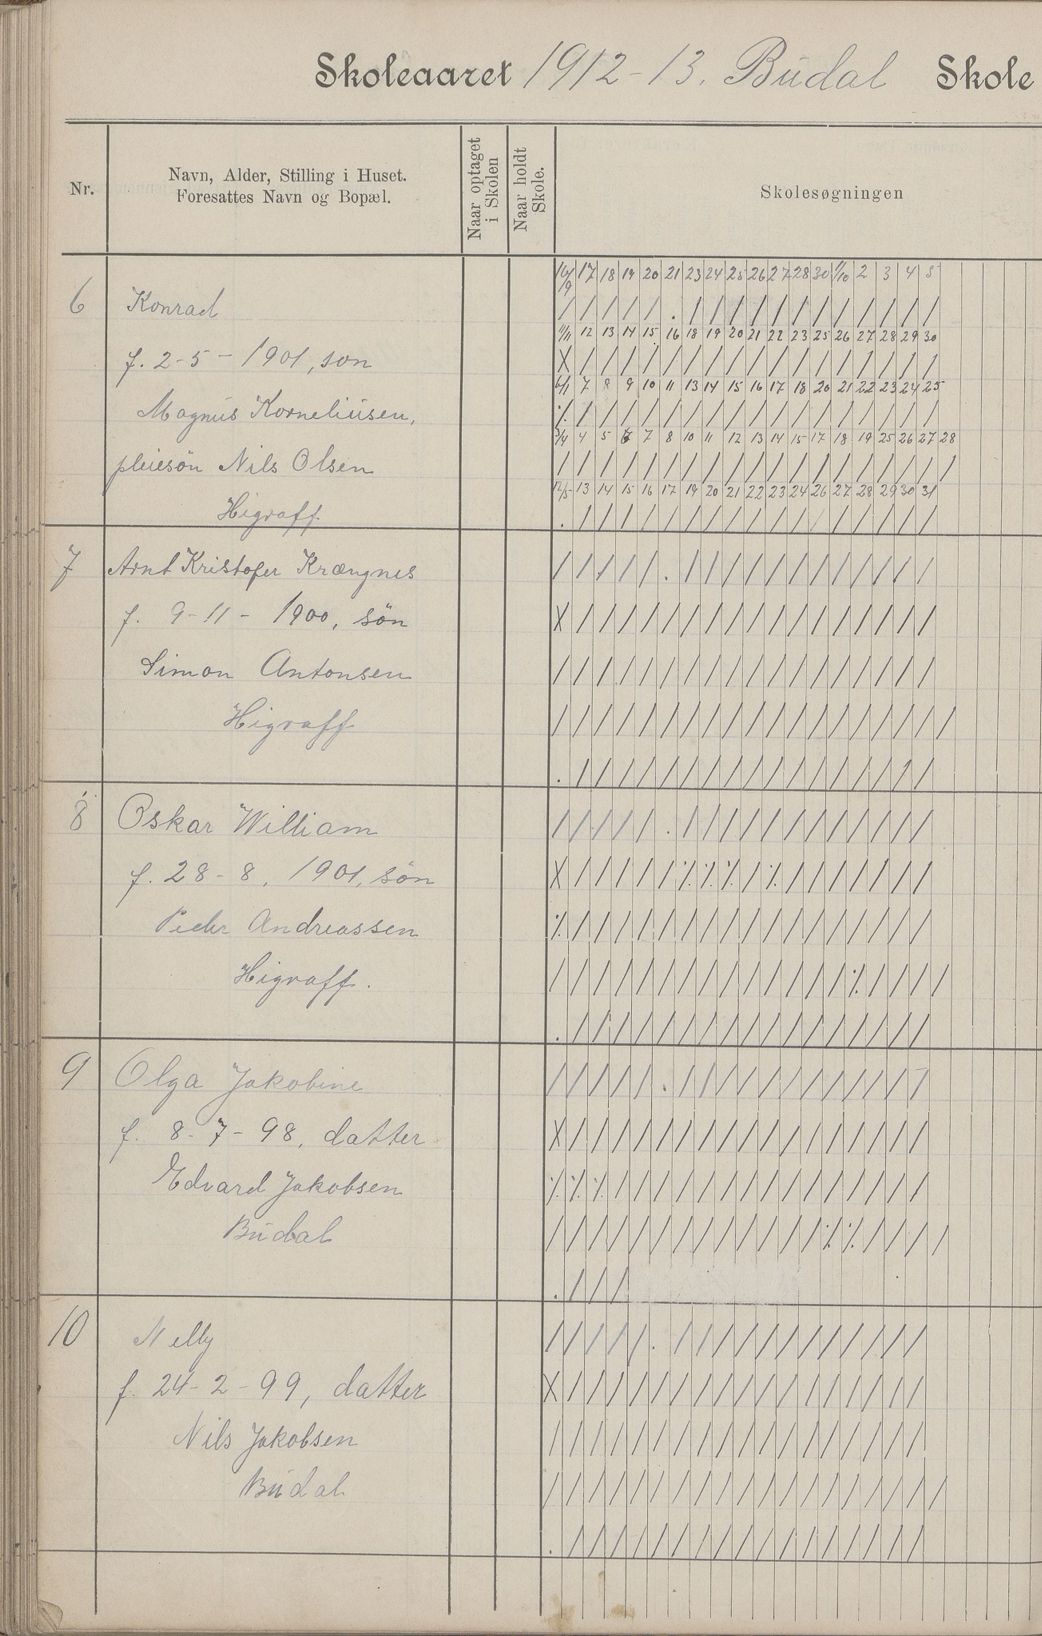 Skoleaaret 1912-13. Budal Skole
Nr.
Navn, Alder, Stilling i Huset.
Foresattes Navn og Bopæl.
Naar optaget
i Skolen
Naar holdt
Skole.
Skolesøgningen
16/9 17 18 19 20 21 23 24 25 26 27 28 30 1/10 2 3 4 5
6 Konrad / / / / / . / / / / / / / / / / / /
11/11 12 13 14 15 16 18 19 20 21 22 23 25 26 27 28 29 30
f. 2-5-1901, søn X / / / / / / / / / / / / / / / / /
6/1 7 8 9 10 11 13 14 15 16 17 18 20 21 22 23 24 25
Magnus Korneliusen, ٪ / / / / / / / / / / / / / / / / /
3/4 4 5 6 7 8 10 11 12 13 14 15 17 18 19 25 26 27 28
pleiesøn Nils Olsen / / / / / / / / / / / / / / / / / / /
12/5 13 14 15 16 17 19 20 21 22 23 24 26 27 28 29 30 31
Higraff . / / / / / / / / / / / / / / / / /
7 Arnt Kristofer Krængnes / / / / / . / / / / / / / / / / / /
f. 9-11-1900, søn X / / / / / / / / / / / / / / / / /
Simon Antonsen / / / / / / / / / / / / / / / / / /
Higraff / / / / / / / / / / / / / / / / / / /
. / / / / / / / / / / / / / / / / /
8 Oskar William / / / / / . / / / / / / / / / / / /
f. 28-8. 1901, søn X / / / / / ٪ ٪ ٪ / ٪ / / / / / / /
Peder Andreassen ٪ / / / / / / / / / / / / / / / / /
Higraff. / / / / / / / / / / / / / / ٪ / / / /
. / / / / / / / / / / / / / / / / /
9 Olga Jakobine / / / / / . / / / / / / / / / / / /
f. 8-7-98, datter X / / / / / / / / / / / / / / / / /
Edvard Jakobsen ٪ ٪ ٪ / / / / / / / / / / / / / / /
Budal / / / / / / / / / / / / / ٪ ٪ / / / /
. / / /
10 Nelly / / / / / . / / / / / / / / / / / /
f. 24-2-99, datter X / / / / / / / / / / / / / / / / /
Nils Jakobsen / / / / / / / / / / / / / / / / / /
Budal / / / / / / / / / / / / / / / / / / /
. / / / / / / / / / / / / / / / / /